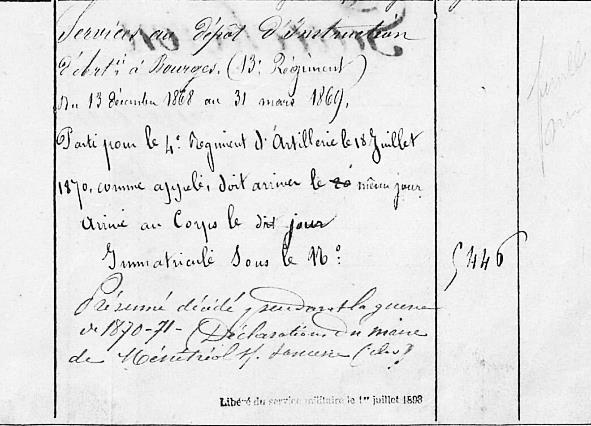 Services au dépôt d'Instruction
d'Art.ie à Bourges. (13e Régiment)
Du 13 décembre 1868 au 31 mars 1869.
Parti pour le 4e Régiment d'Artillerie le 18 Juillet
1870, comme appelé, doit arriver le même jour
Arrivé au Corps le dit jour
Immatriculé Sous le No
5446
Présumé décédé pendant la guerre
de 1870-71 - (Déclaration du maire
de Ménétréol s/ Sancerre (cher)
Libéré du service militaire le 1er juillet 1893